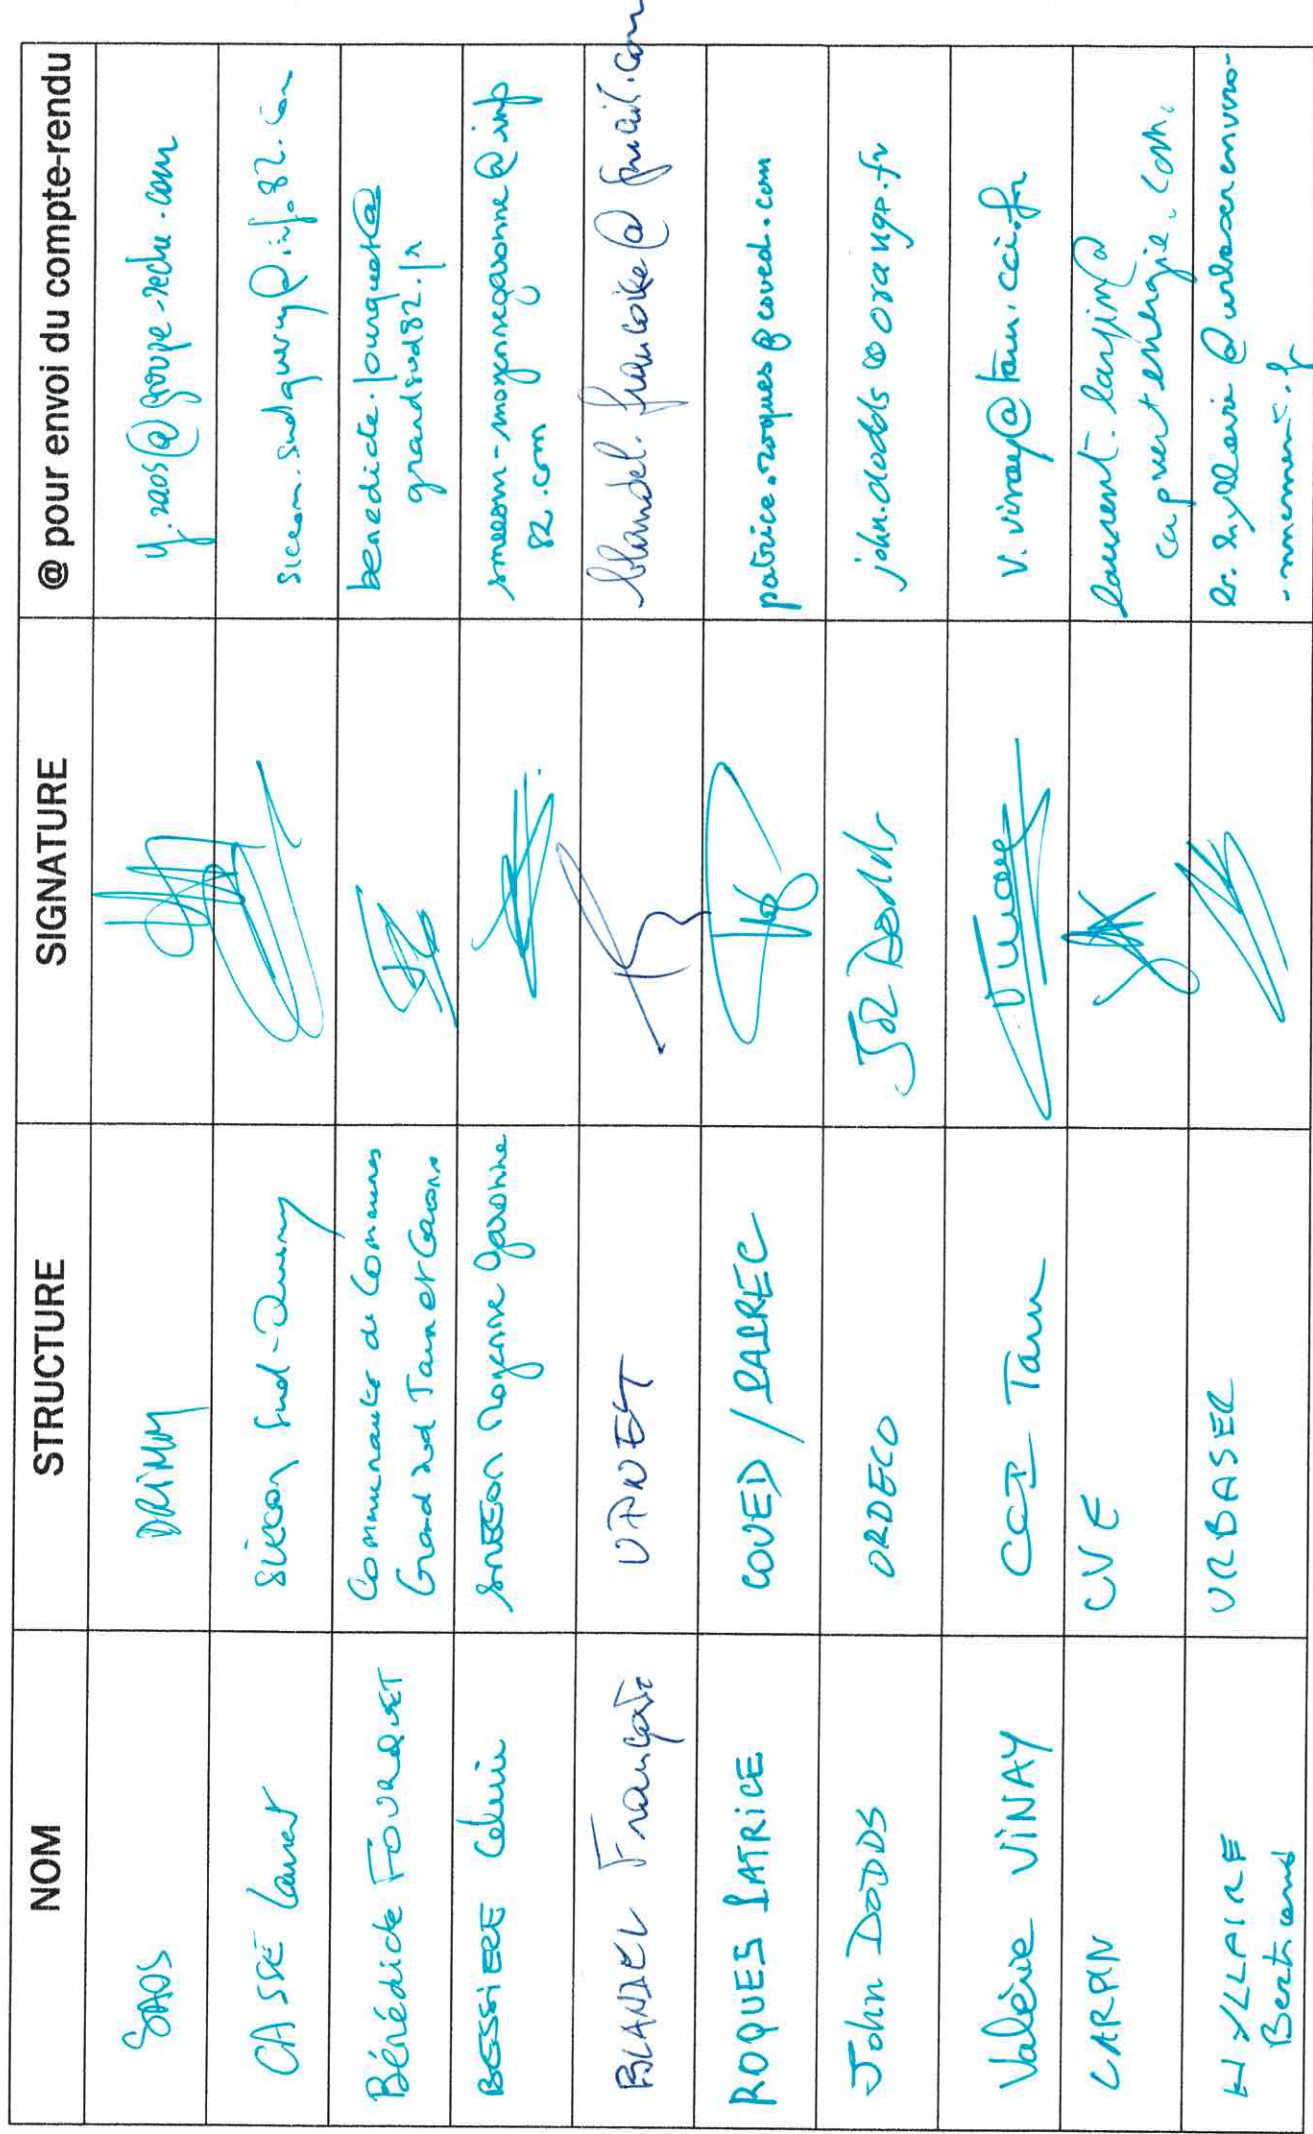 NOM STRUCTURE SIGNATURE @ pour envoi du compte-rendu
SAOS DRIMM y.saos@groupe-seche.com
CASSE Laurent Siccom Sud-Quercy siccom.sudquercy@info82.com
Bénédicte FOURQUET Communauté de Communes benedicte.fourquet@
Grand Sud Tarn et Garonne grandsud82.fr
BESSIERE Céline SMEEOM Moyenne Garonne smeeom-moyennegaronne@info
82.com
BLANDEL Françoise UPNET blandel.francoise@gmail.com
ROQUES PATRICE COVED / PAPREC patrice.roques@coved.com
John DODDS ORDECO John Dodds john.dodds@orange.fr
Valérie VINAY CCI Tarn V.Vinay v.vinay@tarn.cci.fr
LARPIN CVE laurent.larpin@
capvertenergie.com
HYLLAIRE URBASER b.hyllaire@urbaserenviro-
Bertrand -nnement.fr